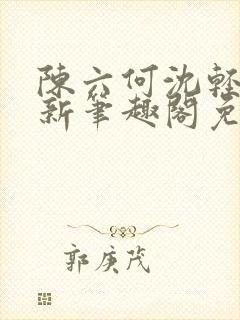 陳六何沈輕
新筆趣閣免
郭庚茂